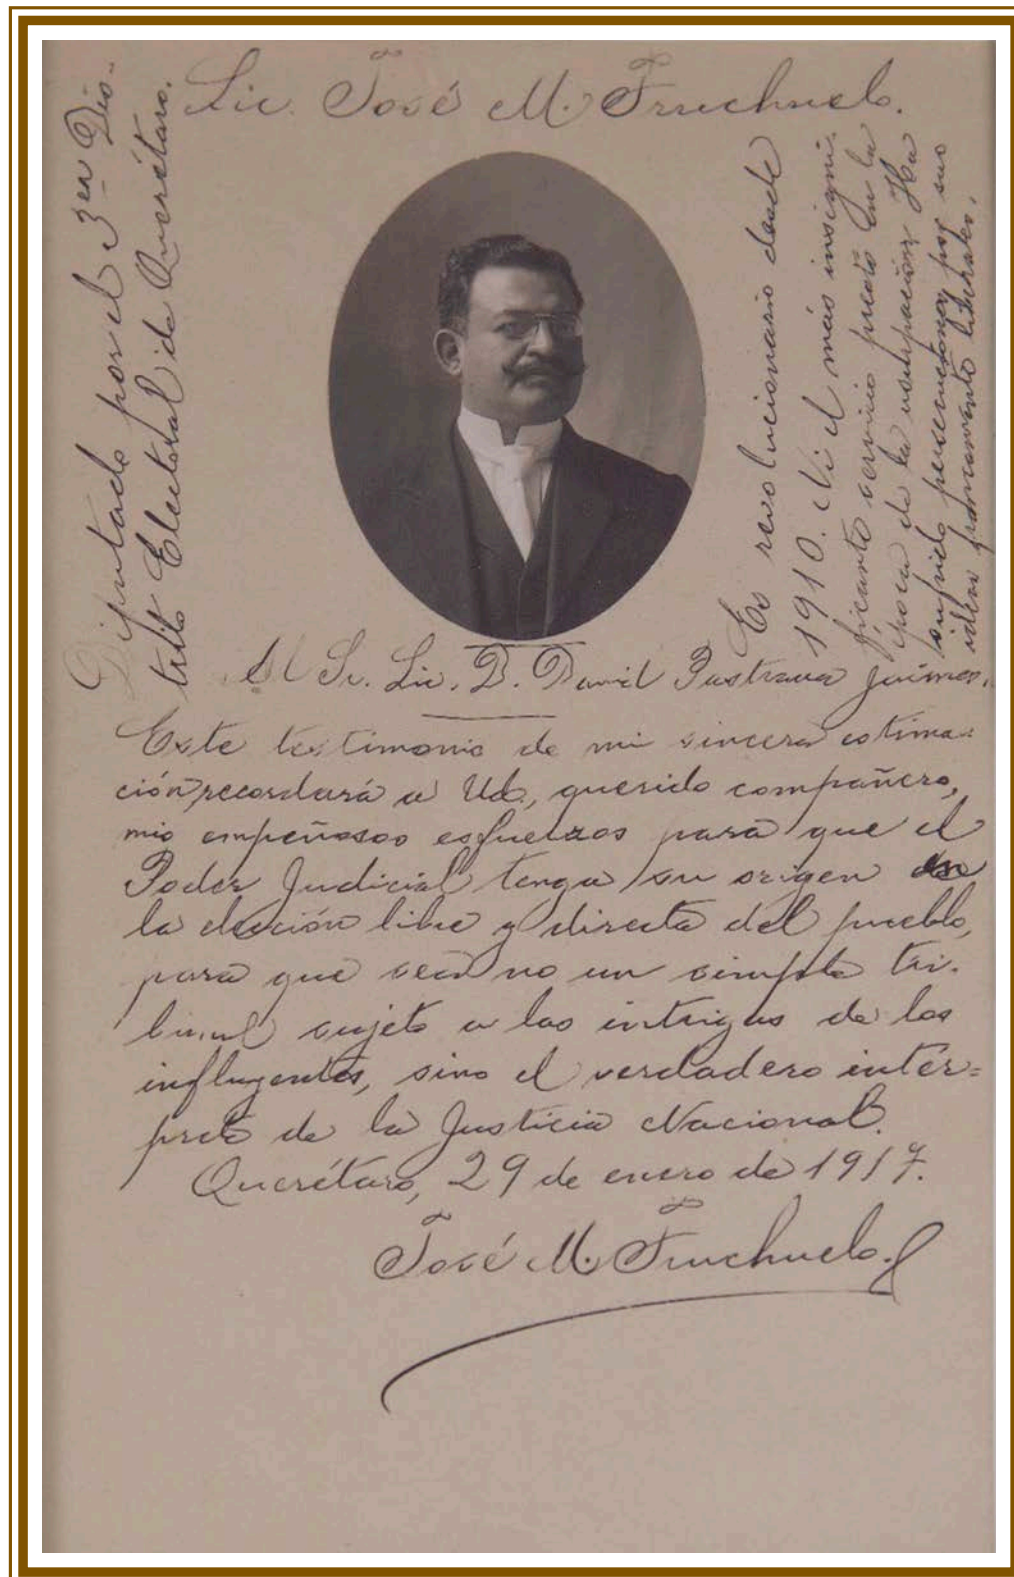 Lic. José M. Truchuelo.
Diputado por el 3er Dis-
trito Electoral de Querétaro.
Es revolucionario desde
1910. Ni el más insigni-
ficante servicio prestó en la
época de la usurpación. Ha
sufrido persecuciones por sus
ideas francamente liberales.
Al Sr. Lic. D. David Pastrana Jaimes.
Este testimonio de mi sincera estima-
ción, recordará a Ud., querido compañero,
mis empeñosos esfuerzos para que el
Poder Judicial tenga su origen en
la elección libre y directa del pueblo,
para que sea no un simple tri-
bunal sujeto a las intrigas de los
influyentes, sino el verdadero intér-
prete de la Justicia Nacional.
Querétaro, 29 de enero de 1917.
José M. Truchuelo.